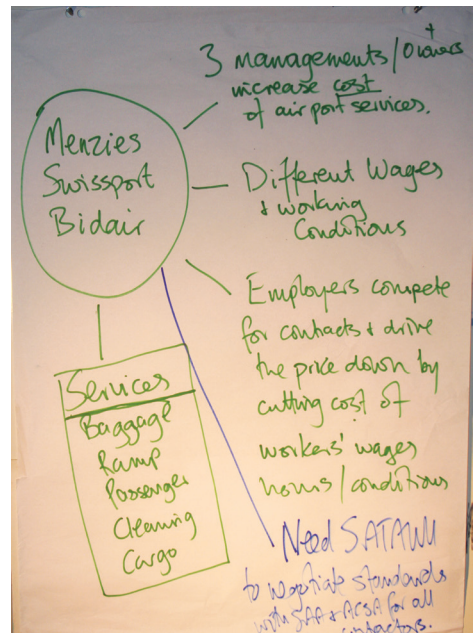 3 managements/Owners +
increase cost
of airport services.
Menzies
Swissport
Bidair
Different Wages
+ working
Conditions
Employers compete
for contacts + drive
the price down by
cutting cost of
workers' wages
hours/conditions
Services
Baggage
Ramp
Passenger
Cleaning
Cargo
Need SATAWU
to negotiate standards
with SAA + ACSA for all
contractors.